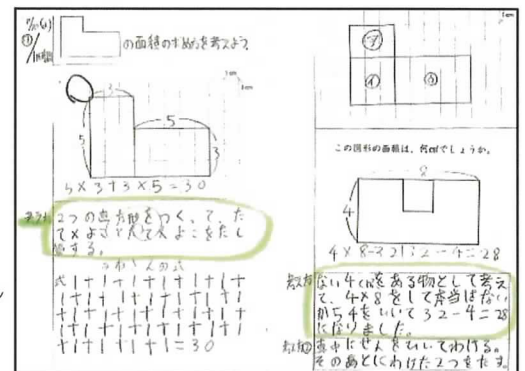 の面積の求め方を考えよう
1cm
3
5
5
3
5×3+3×5=30
考え方
2つの直方形をつくって、た
て×よことたて×よこをたし
算する。
たしざんの式
式1+1+1+1+1+1+1+1
+1+1+1=30
1cm
㋐
㋑
㋒
この図形の面積は、何cm²でしょうか。
8
4
4×8=32 32-4=28
考え方
ない4cm²をある物として考え
て、4×8をして本当はない
から4をひいて32-4=28
になりました。
考え方②
真中にせんをひいてわける。
そのあとにわけた2つをたす。